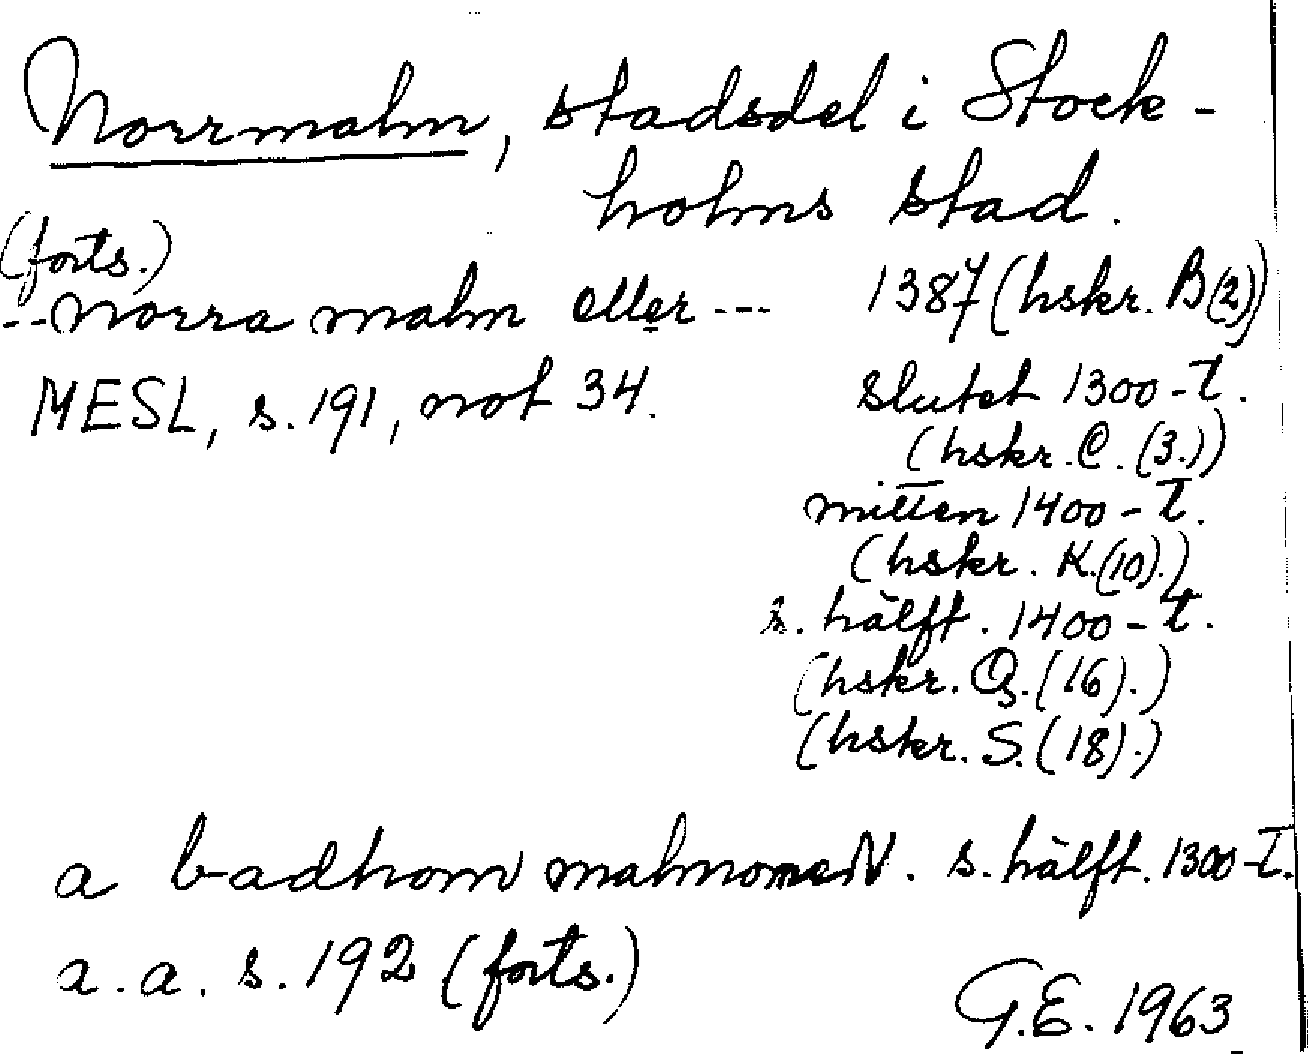 Norrmalm, stadsdel i Stock-
holms stad.
(forts.)
--norra malm eller --- 1387 (hskr. B(2))
MESL, s. 191, not 34. slutet 1300-t.
(hskr. C. (3.))
mitten 1400-t.
(hskr. K.(10).)
s. hälft. 1400-t.
(hskr. Q. (16).)
(hskr. S. (18).)
a badhom s. hälft. 1300-t.
a.a. s. 192 (forts.)
G.E. 1963